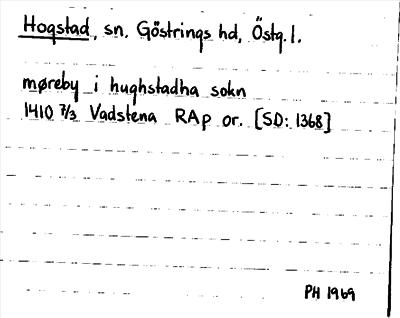 Hogstad, sn. Göstrings hd, Östg. l.
møreby i hughstadha sokn
1410 7/3 Vadstena RAp or. [SD: 1368]
PH 1969